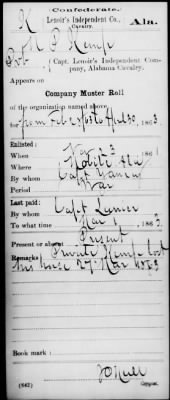 Confederate.
K Lenoir's Independent Co., Ala.
Cavalry.
M P Kemp
Pvt, Capt. Lenoir's Independent Com-
pany, Alabama Cavalry.
Appears on
Company Muster Roll
of the organization named above
for from Feb 28 to Apl 30, 1863
Enlisted:
When Nov 23, 1861
Where Ala
By whom Capt
Period War
Last paid:
By whom Capt Lenoir
To what time Mar 1, 1863
Present or absent Present
Remarks Private Kemp lost
his horse 27 Mar 1863
Book mark:
(642) Copyist.